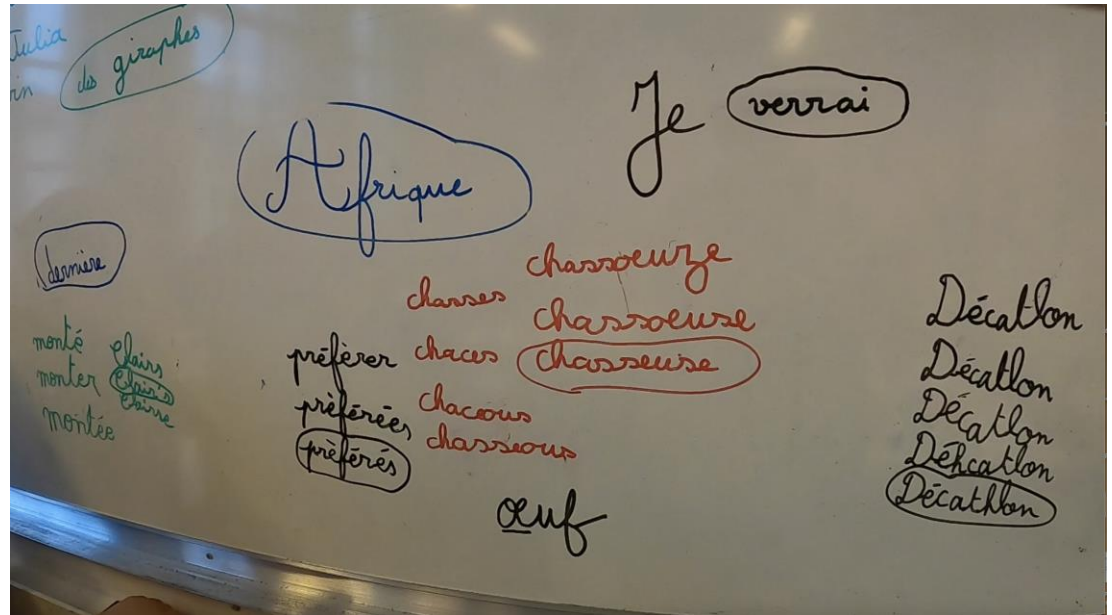 Julia
des giraphes
Je verrai
Afrique
dernière
monté
monter
montée
Clairs
Clair's
Clairse
préfèrer
prèférées
prèférés
chasses
chaces
chaceous
chasseous
chassoeuze
chassoeuse
chasseuse
œuf
Décatlon
Décatlon
Décatlon
Déhcatlon
Décathlon